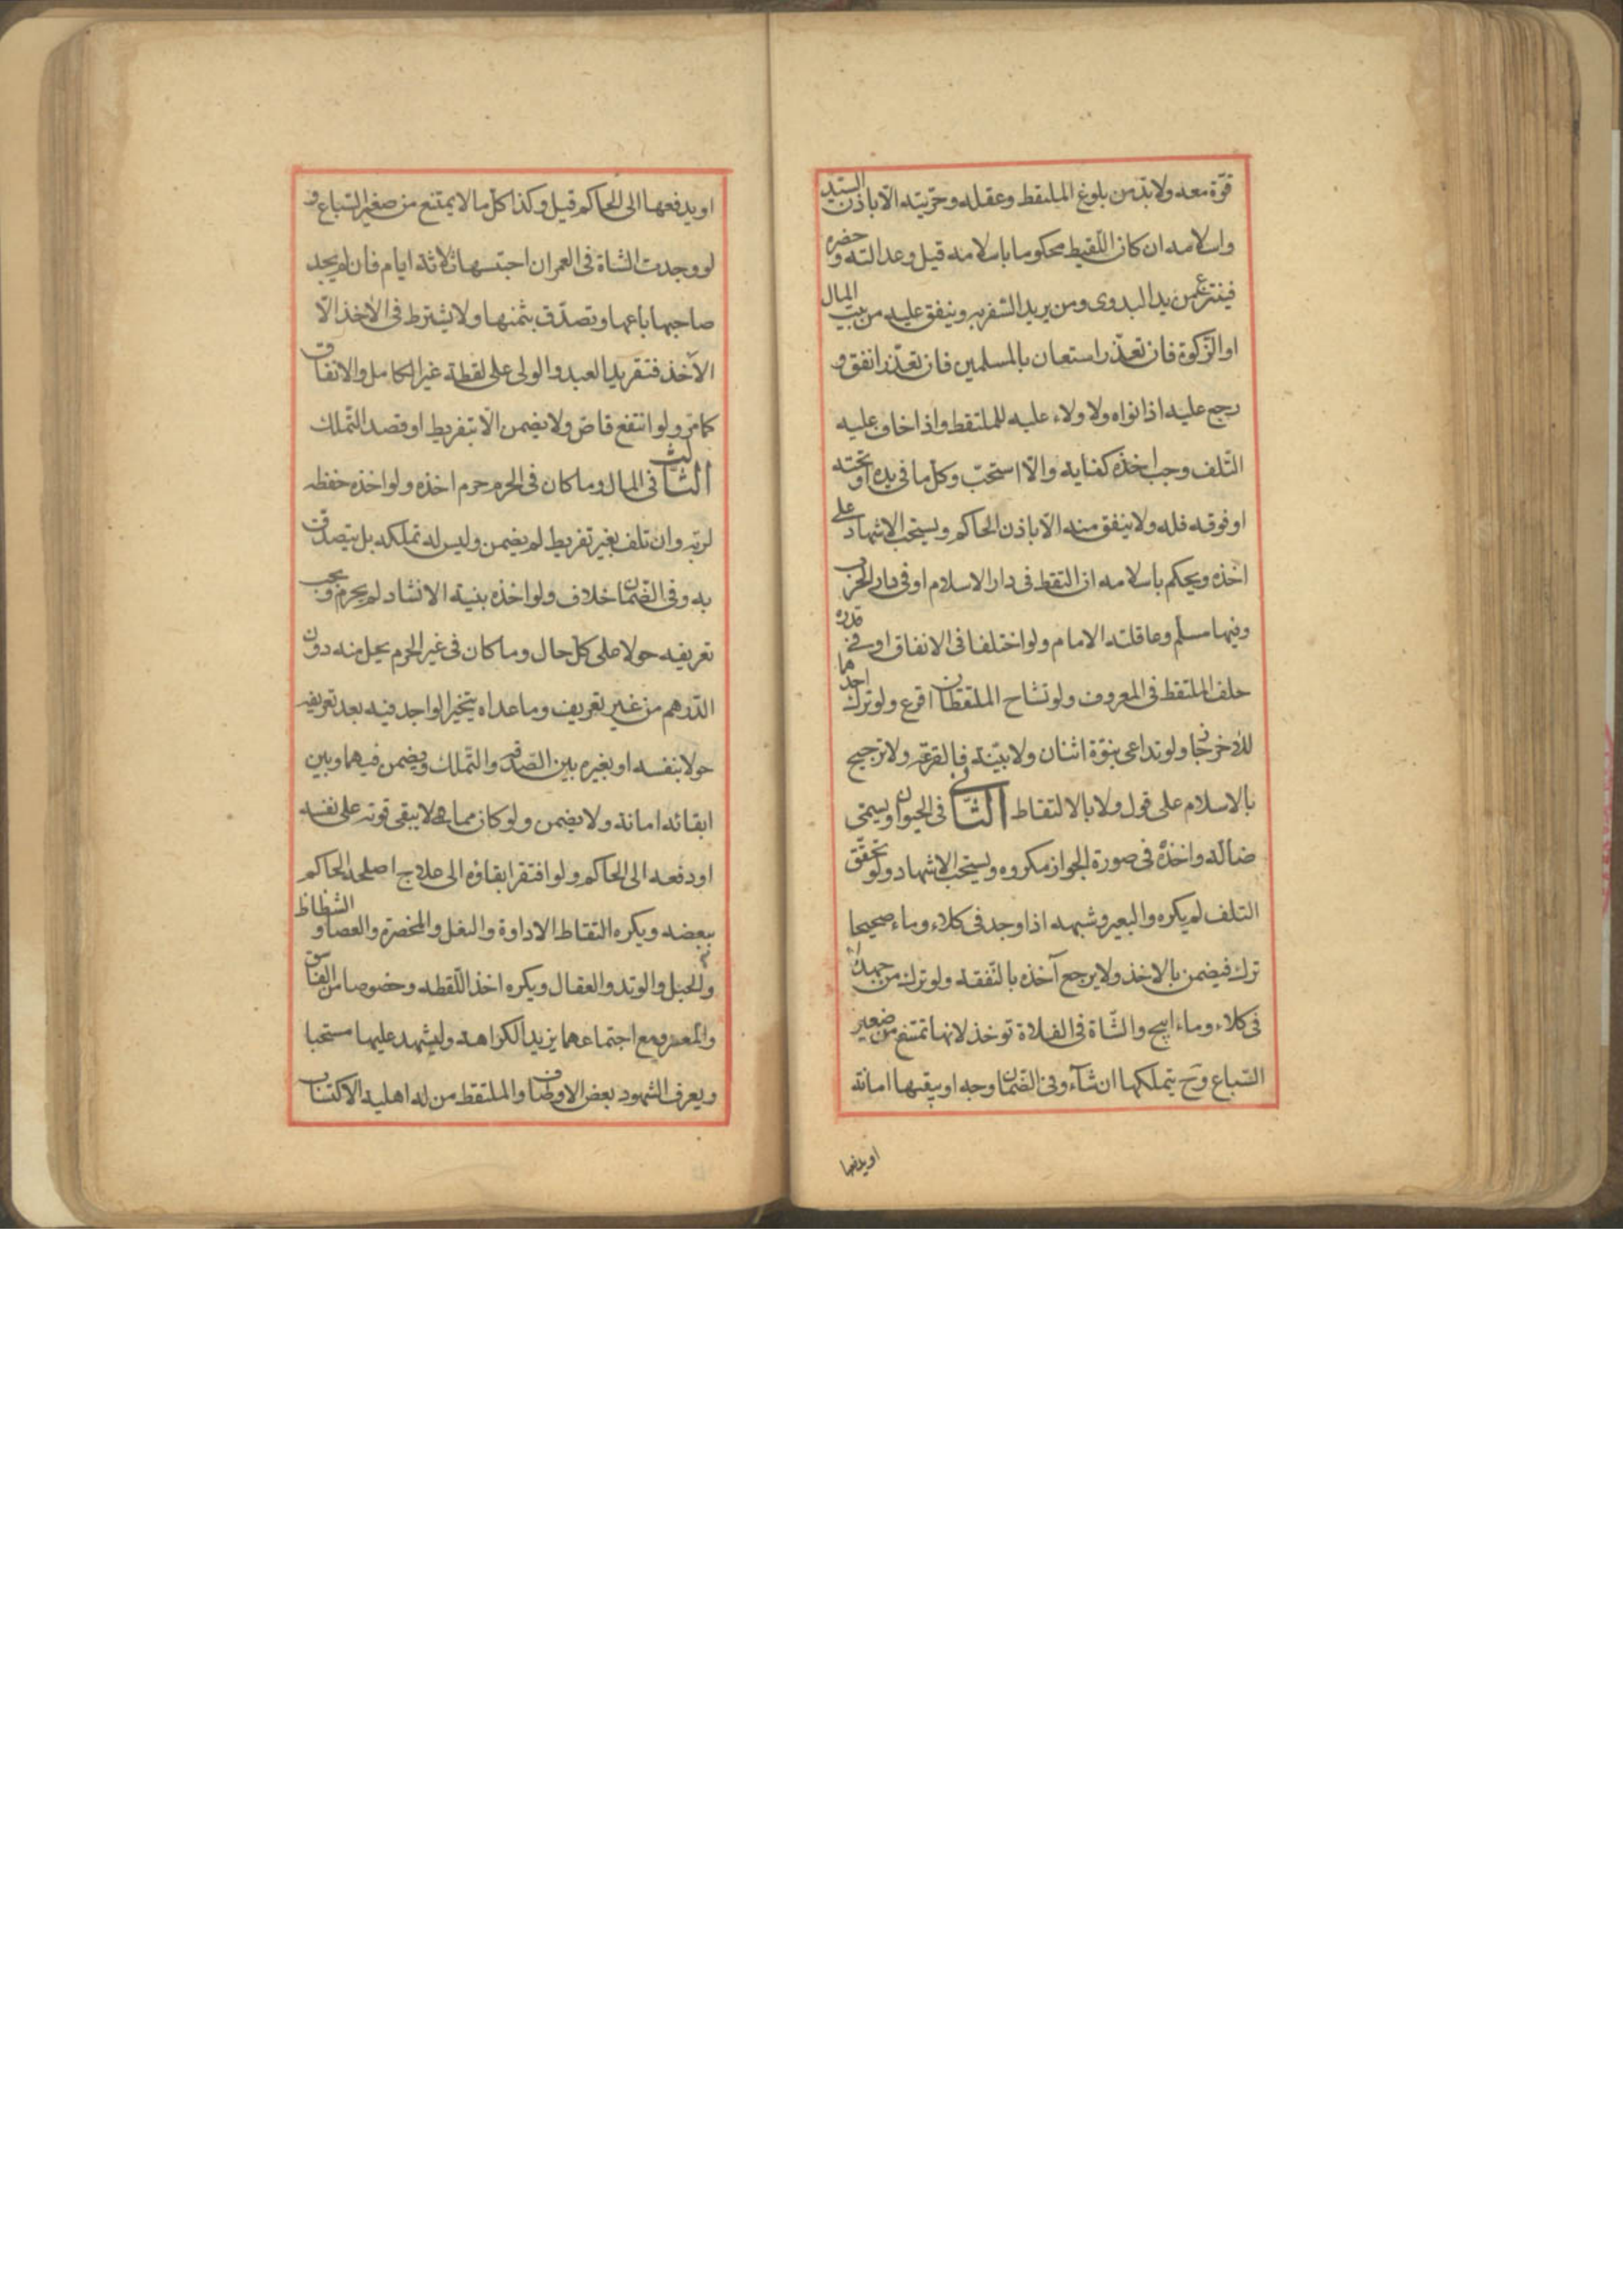 قوّة معه ولا بدّ من بلوغ الملتقط وعقله وحرّيته الّا باذن السيّد
واسلامه ان كان اللّقيط محكوما باسلامه قيل وعدالته وحضره
فينتزع من يد البدوى ومن يريد السّفر به وينفق عليه من بيت المال
او الزّكوة فان تعذّر استعان بالمسلمين فان تعذّر انفق و
رجع عليه اذا نواه ولا ولاء عليه للملتقط واذا خاف عليه
التّلف وجب اخذه كفاية والّا استحبّ وكلّ ما فى يده او تحته
او فوقه فله ولا ينفق منه الّا باذن الحاكم ويستحبّ الاشهاد على
اخذه ويحكم باسلامه ان التقط فى دار الاسلام او فى دار الحرب
وفيها مسلم وعاقلته الامام ولو اختلفا فى الانفاق او فى قدره
حلف الملتقط فى المعروف ولو تشاح الملتقطان اقرع ولو ترك احدهما
للاخر جاز ولو تداعى بنوّة اثنان ولا بيّنة فالقرعة ولا ترجيح
بالاسلام على قول ولا بالالتقاط الثّانى فى الحيوان ويسمّى
ضالّة واخذه فى صورة الجواز مكروه ويستحبّ الاشهاد ولو تحقّق
التلف لم يكره والبعير وشبهه اذا وجد فى كلاء وماء صحيحا
ترك فيضمن بالاخذ ولا يرجع آخذه بالنّفقه ولو ترك من جهد لا
فى كلاء وماء ابيح والشّاة فى الفلاة توخذ لانها لا تمتنع من صغير
السّباع وح يتملكها ان شآء وفى الضّمان وجه او يبقيها امانة
او يدفعها
او يدفعها الى الحاكم قيل وكذا كلّ ما لا يمتنع من صغير السّباع و
لو وجدت الشّاة فى العمران احتبسها ثلاثة ايام فان لم يجد
صاحبها باعها وتصدّق بثمنها ولا يشترط فى الاخذ الّا
الآخذ فتقر يد العبد والولى على لقطة غير الكامل والانفاق
كما مرّ ولو انتفع قاصّ ولا يضمن الّا بتفريط او قصد التّملك
الثّالث فى المال وما كان فى الحرم حرم اخذه ولو اخذه حفظه
لربّه وان تلف بغير تفريط لم يضمن وليس له تملكه بل يتصدق
به وفى الضّمان خلاف ولو اخذه بنية الانشاد لم يحرم ويجب
تعريفه حولا على كلّ حال وما كان فى غير الحرم يحل منه دون
الدّرهم من غير تعريف وما عداه يتخير الواجد فيه بعد تعريفه
حولا بنفسه او بغيره بين الصّدقة والتّملك ويضمن فيهما وبين
ابقائه امانة ولا يضمن ولو كان مما لا يبقى قوته على نفسه
او دفعه الى الحاكم ولو افتقر ابقاؤه الى علاج اصلحه الحاكم
ببعضه ويكره التقاط الاداوة والنعل والمخصرة والعصا والشظاظ
والحبل والوتد والعقال ويكره اخذ اللّقطه وخصوصا من الفاسق
والمعسر ومع اجتماعهما يزيد الكراهة وليشهد عليها مستحبا
ويعرف الشهود بعض الاوصاف والملتقط من له اهلية الاكتساب